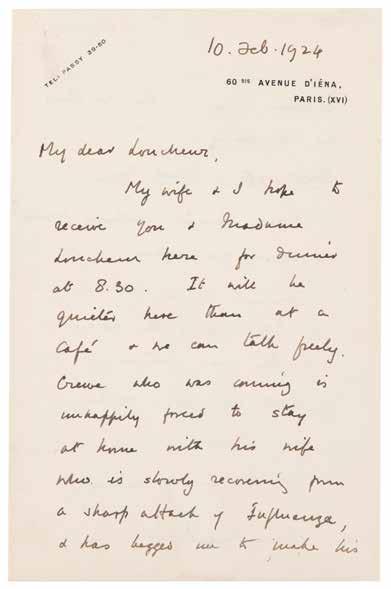 TELI PASSY 39-60
10. Feb. 1924
60 BIS AVENUE D'IÉNA,
PARIS. (XVI)
My dear Loucheur,
My wife & I hope to
receive you & Madame
Loucheur here for dinner
at 8.30. It will be
quieter here than at a
Café & we can talk freely.
Crewe who was coming is
unhappily forced to stay
at home with his wife
who is slowly recovering from
a sharp attack of Influenza,
& has begged me to make his